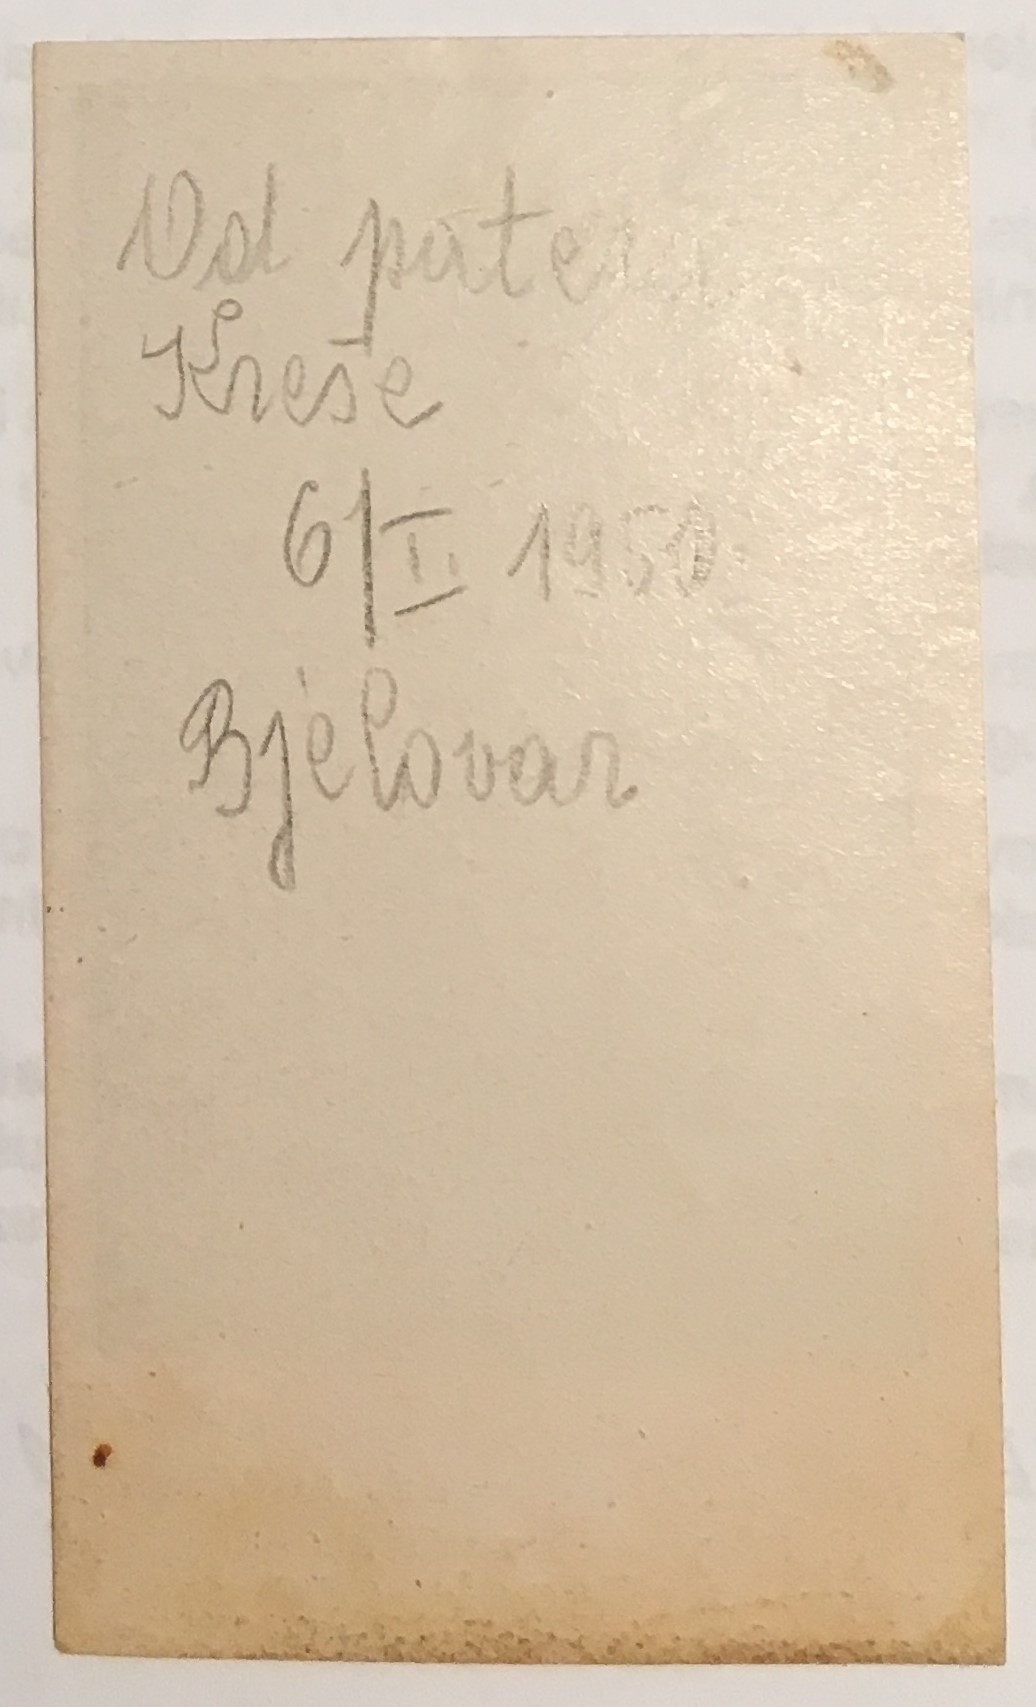 Od patera
Kreše
6/I. 1950.
Bjelovar